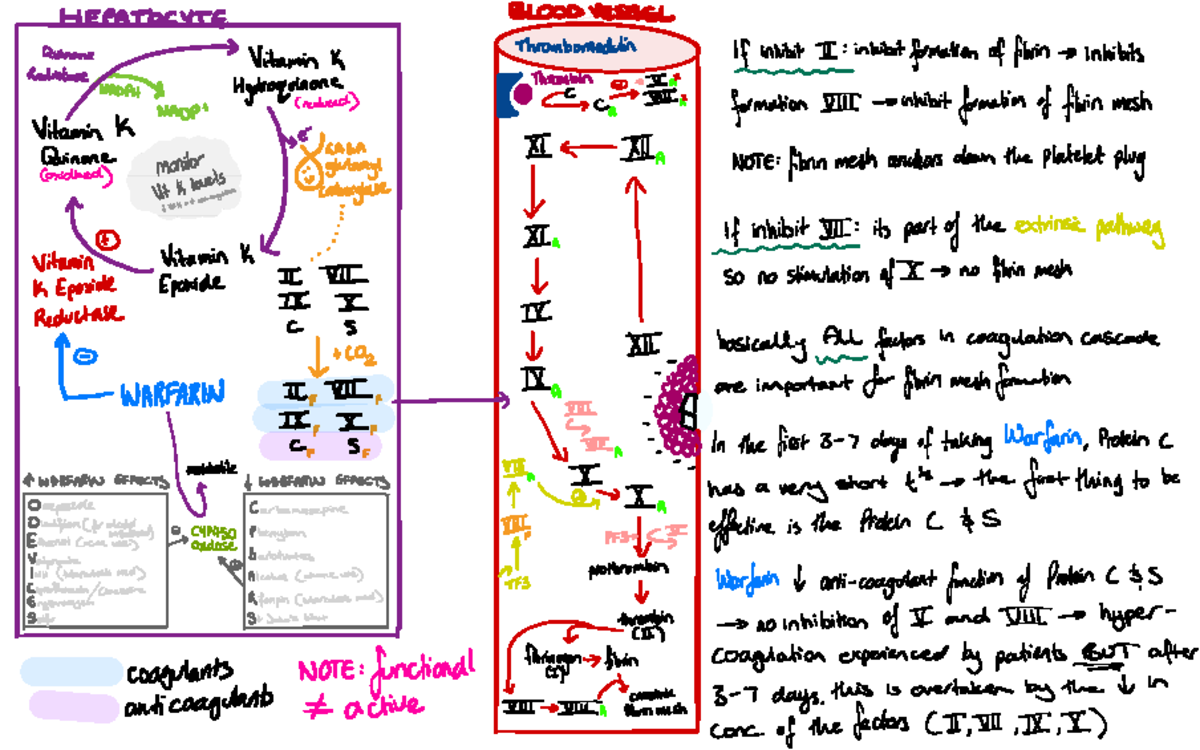 HEPATOCYTE
Quinone
Reductase
NADPH
NADP+
Vitamin K
Hydroquinone
(reduced)
Vitamin K
Quinone
(oxidised)
monitor
Vit K levels
e-
glutamyl
carboxylase
Vitamin K
Epoxide
Vitamin
K Epoxide
Reductase
II VII
IX X
C S
+ CO2
WARFARIN
II F VII F
IX F X F
C F S F
metabolite
↑ WARFARIN EFFECTS
CYP450
oxidase
↓ WARFARIN EFFECTS
Carbamazepine
coagulants
anti coagulants
NOTE: functional
≠ active
BLOOD VESSEL
Thrombomodulin
Thrombin
C
C A
XI
XII A
XI A
IV
IV A
XII
VIII
VIII A
X
X A
VII A
VII F
TF3
PF3
prothrombin
thrombin
(II)
fibrinogen
fibrin
VIII
VIII A
fibrin mesh
If inhibit II: inhibit formation of fibrin → inhibits
formation VIII → inhibit formation of fibrin mesh
NOTE: fibrin mesh anchors down the platelet plug
If inhibit VII: its part of the extrinsic pathway
so no stimulation of X → no fibrin mesh
basically ALL factors in coagulation cascade
are important for fibrin mesh formation
In the first 3-7 days of taking Warfarin, Protein C
has a very short t½ → the first thing to be
effective is the Protein C & S
Warfarin ↓ anti-coagulant function of Protein C & S
→ no inhibition of V and VIII → hyper-
coagulation experienced by patients BUT after
3-7 days, this is overtaken by the ↓ in
conc of the factors (II, VII, IX, X)